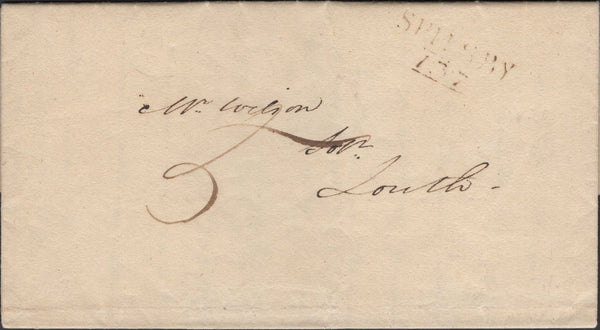 SPILSBY
137
Mr. Wilson
5
Solr.
Louth